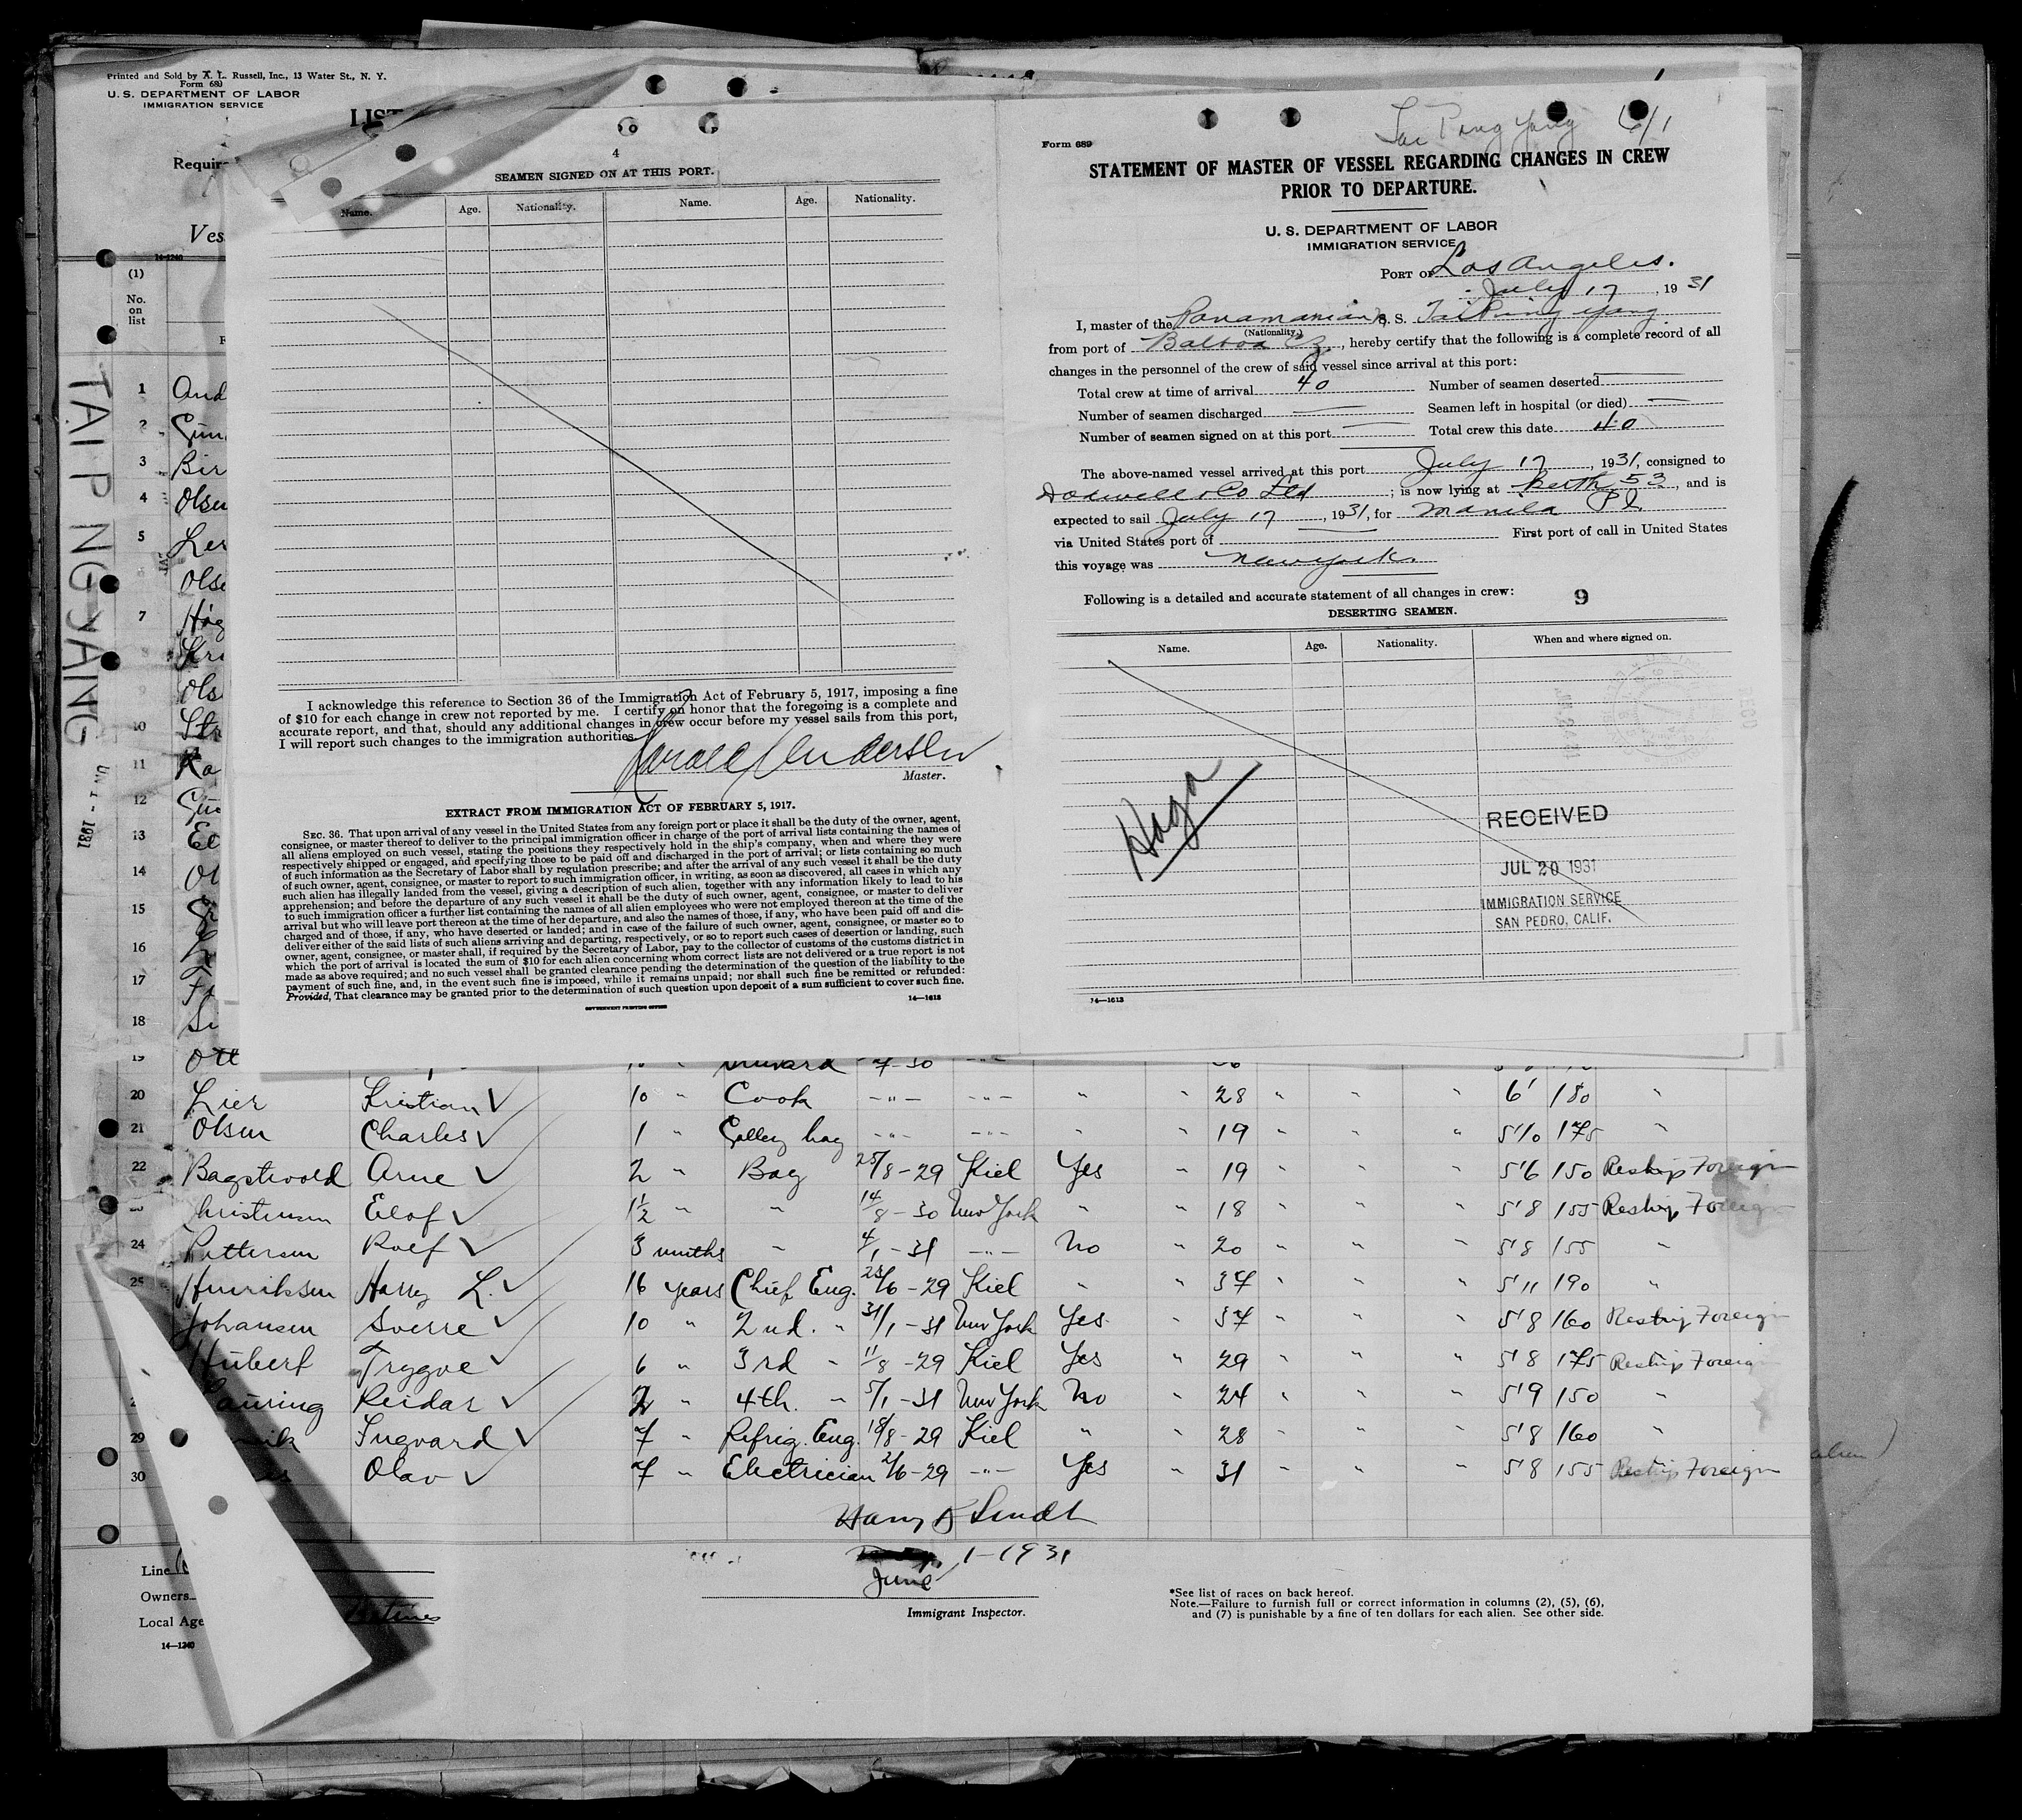 Printed and Sold by A. L. Russell, Inc., 13 Water St., N. Y.
Form 680
U. S. DEPARTMENT OF LABOR
IMMIGRATION SERVICE
LIST
Requir
Ves
14-1240
(1)
No.
on
list
TAI PING YANG
1931
1 And
2 Gun
3 Bir
4 Olsen
5 Ler
Olse
7 Hag
8 Kri
9 Ols
10 Str
11 Ka
12 Gu
13 El
14 Ol
15
16
17
18
19 Ott
4
SEAMEN SIGNED ON AT THIS PORT.
Name. Age. Nationality. Name. Age. Nationality.
I acknowledge this reference to Section 36 of the Immigration Act of February 5, 1917, imposing a fine
of $10 for each change in crew not reported by me. I certify on honor that the foregoing is a complete and
accurate report, and that, should any additional changes in crew occur before my vessel sails from this port,
I will report such changes to the immigration authorities.
Harald Andersen
Master.
EXTRACT FROM IMMIGRATION ACT OF FEBRUARY 5, 1917.
SEC. 36. That upon arrival of any vessel in the United States from any foreign port or place it shall be the duty of the owner, agent,
consignee, or master thereof to deliver to the principal immigration officer in charge of the port of arrival lists containing the names of
all aliens employed on such vessel, stating the positions they respectively hold in the ship's company, when and where they were
respectively shipped or engaged, and specifying those to be paid off and discharged in the port of arrival; or lists containing so much
of such information as the Secretary of Labor shall by regulation prescribe; and after the arrival of any such vessel it shall be the duty
of such owner, agent, consignee, or master to report to such immigration officer, in writing, as soon as discovered, all cases in which any
such alien has illegally landed from the vessel, giving a description of such alien, together with any information likely to lead to his
apprehension; and before the departure of any such vessel it shall be the duty of such owner, agent, consignee, or master to deliver
to such immigration officer a further list containing the names of all alien employees who were not employed thereon at the time of the
arrival but who will leave port thereon at the time of her departure, and also the names of those, if any, who have been paid off and dis-
charged and of those, if any, who have deserted or landed; and in case of the failure of such owner, agent, consignee, or master so to
deliver either of the said lists of such aliens arriving and departing, respectively, or so to report such cases of desertion or landing, such
owner, agent, consignee, or master shall, if required by the Secretary of Labor, pay to the collector of customs of the customs district in
which the port of arrival is located the sum of $10 for each alien concerning whom correct lists are not delivered or a true report is not
made as above required; and no such vessel shall be granted clearance pending the determination of the question of the liability to the
payment of such fine, and, in the event such fine is imposed, while it remains unpaid; nor shall such fine be remitted or refunded:
Provided, That clearance may be granted prior to the determination of such question upon deposit of a sum sufficient to cover such fine.
GOVERNMENT PRINTING OFFICE 14—1613
Tai Ping Yang 6/1
Form 689
STATEMENT OF MASTER OF VESSEL REGARDING CHANGES IN CREW
PRIOR TO DEPARTURE.
U. S. DEPARTMENT OF LABOR
IMMIGRATION SERVICE
PORT OF Los Angeles.
July 17, 1931
I, master of the Panamanian S. S. Tai Ping Yang
(Nationality.)
from port of Balboa C Z., hereby certify that the following is a complete record of all
changes in the personnel of the crew of said vessel since arrival at this port:
Total crew at time of arrival 40 Number of seamen deserted —
Number of seamen discharged — Seamen left in hospital (or died) —
Number of seamen signed on at this port — Total crew this date 40
The above-named vessel arrived at this port July 17, 1931, consigned to
Dodwell & Co Ltd; is now lying at Berth 53, and is
expected to sail July 17, 1931, for Manila P I.
via United States port of First port of call in United States
this voyage was New York.
Following is a detailed and accurate statement of all changes in crew: 9
DESERTING SEAMEN.
Name. Age. Nationality. When and where signed on.
RECEIVED
JUL 20 1931
IMMIGRATION SERVICE
SAN PEDRO, CALIF.
14—1613
7-30 -"-
20 Lier Kristian ✓ 10 " Cook -"- -"- " " 28 " " " 6' 180 "
21 Olsen Charles ✓ 1 " Galley boy -"- -"- " " 19 " " " 5'10 175 "
22 Bagstevold Arne ✓ 2 " Boy 25/8-29 Kiel Yes " 19 " " " 5'6 150 Reship Foreign
Christensen Elof ✓ 1½ " " 14/8-30 New York " " 18 " " " 5'8 155 Reship Foreign
24 Pettersen Rolf ✓ 3 months " 4/1-31 -"- No " 20 " " " 5'8 155 "
25 Henriksen Harry L. ✓ 16 years Chief Eng. 28/6-29 Kiel " " 37 " " " 5'11 190 "
Johansen Sverre ✓ 10 " 2nd. " 31/1-31 New York Yes " 37 " " " 5'8 160 Reship Foreign
Hubert Trygve ✓ 6 " 3rd " 11/8-29 Kiel Yes " 29 " " " 5'8 175 Reship Foreig
auring Reidar ✓ 2 " 4th. " 5/1-31 New York No " 24 " " " 5'9 150 "
29 Ingvard ✓ 7 " Refrig. Eng. 18/8-29 Kiel " " 28 " " " 5'8 160 "
30 Olav ✓ 7 " Electrician 2/6-29 -"- Yes " 31 " " " 5'8 155 Reship Foreign
June 1-1931
Immigrant Inspector.
Line
Owners
Local Age
14—1240
*See list of races on back hereof.
Note.—Failure to furnish full or correct information in columns (2), (5), (6),
and (7) is punishable by a fine of ten dollars for each alien. See other side.